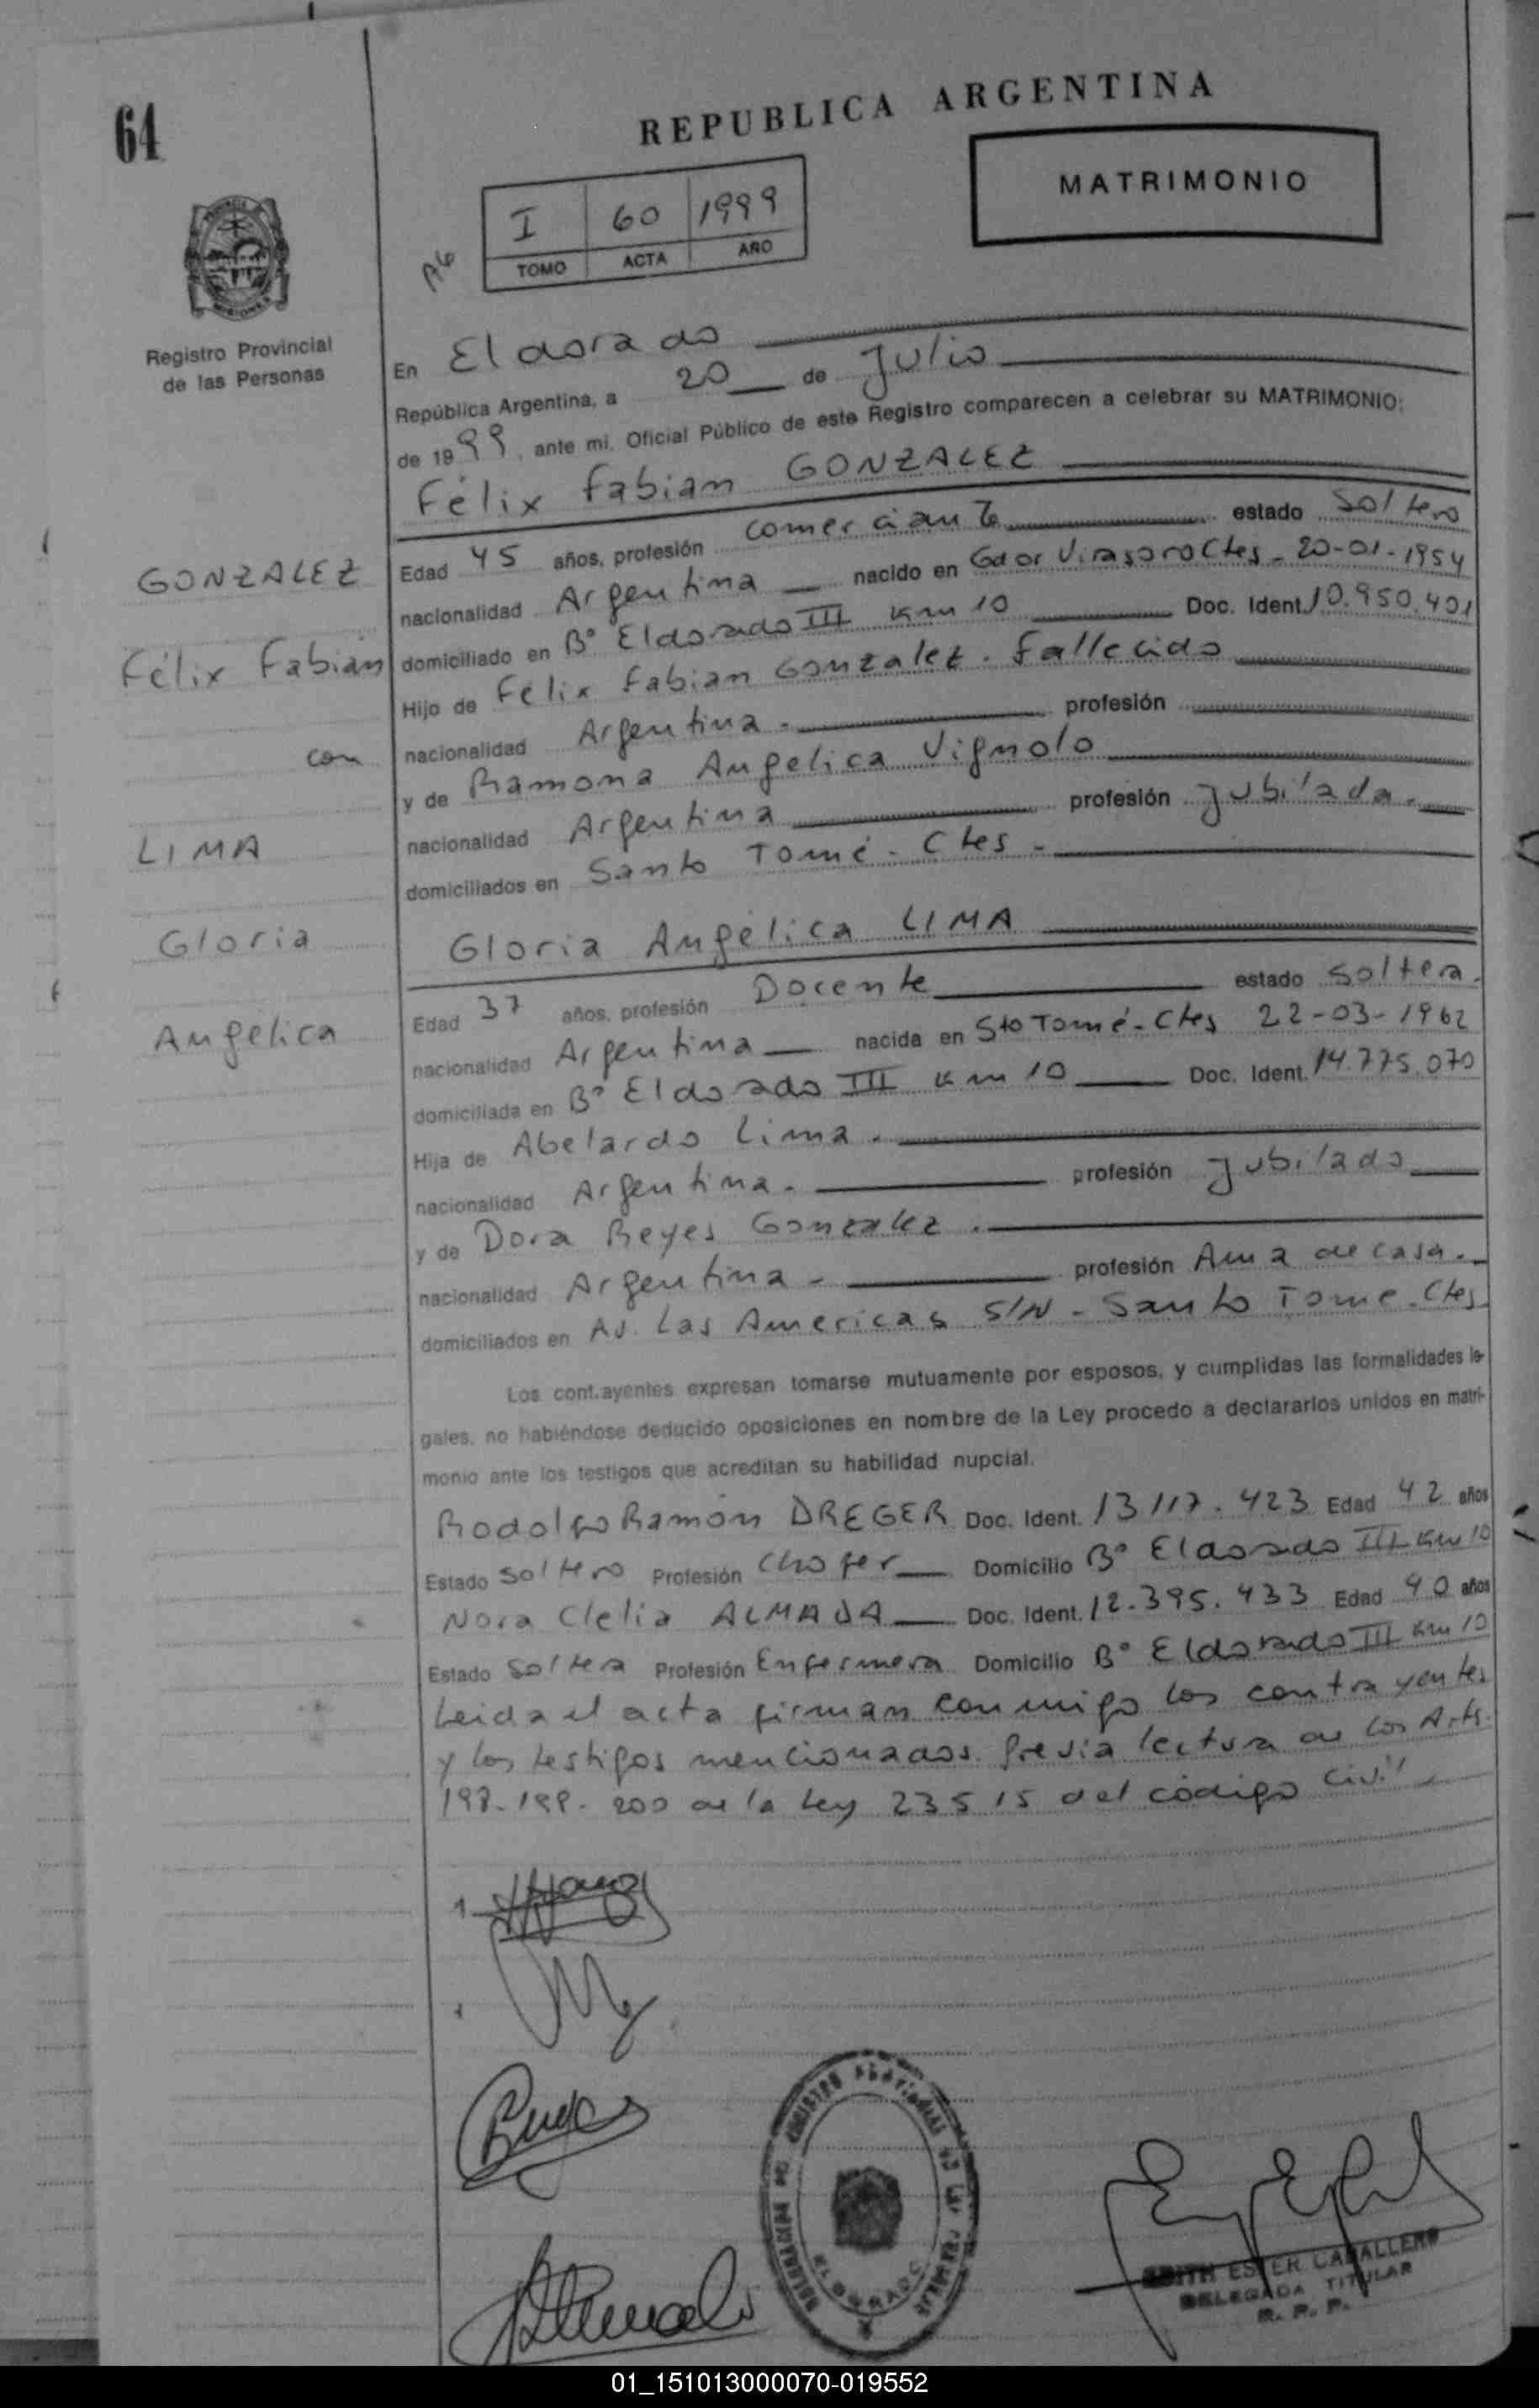 64
REPUBLICA ARGENTINA
MATRIMONIO
I 60 1999
TOMO ACTA AÑO
Registro Provincial
de las Personas
En Eldorado
República Argentina, a 20 de Julio
de 1999, ante mi, Oficial Público de este Registro comparecen a celebrar su MATRIMONIO:
Félix Fabian GONZALEZ
Edad 45 años, profesión comerciante estado Soltero
GONZALEZ
nacionalidad Argentina nacido en Gdor Virasoro Ctes - 20-01-1954
domiciliado en B° Eldorado III Km 10 Doc. Ident. 10.950.401
Félix Fabian
Hijo de Félix Fabian Gonzalez. Fallecido
nacionalidad Argentina - profesión
con
y de Ramona Angelica Vignolo
nacionalidad Argentina profesión Jubilada.
LIMA
domiciliados en Santo Tomé - Ctes -
Gloria
Gloria Angélica LIMA
Edad 37 años, profesión Docente estado Soltera.
Angélica
nacionalidad Argentina nacida en Sto Tomé - Ctes 22-03-1962
domiciliada en B° Eldorado III Km 10 Doc. Ident. 14.775.070
Hija de Abelardo Lima.
nacionalidad Argentina. profesión Jubilado
y de Dora Reyes Gonzalez.
nacionalidad Argentina - profesión Ama de casa.
domiciliados en Av. Las Americas S/N - Santo Tome - Ctes
Los contrayentes expresan tomarse mutuamente por esposos, y cumplidas las formalidades le-
gales, no habiéndose deducido oposiciones en nombre de la Ley procedo a declararlos unidos en matri-
monio ante los testigos que acreditan su habilidad nupcial.
Rodolfo Ramón DREGER Doc. Ident. 13 117.423 Edad 42 años
Estado Soltero Profesión Chofer Domicilio B° Eldorado III Km 10
Nora Clelia ALMADA Doc. Ident. 12.395.433 Edad 40 años
Estado Soltera Profesión Enfermera Domicilio B° Eldorado III Km 10
Leida el acta firman conmigo los contrayentes
y los testigos mencionados. Previa lectura de los Arts.
198-199-200 de la Ley 23515 del código Civil
ELDORADO
EDITH ESTER CABALLERO
DELEGADA TITULAR
R. P. P.
01_151013000070-019552